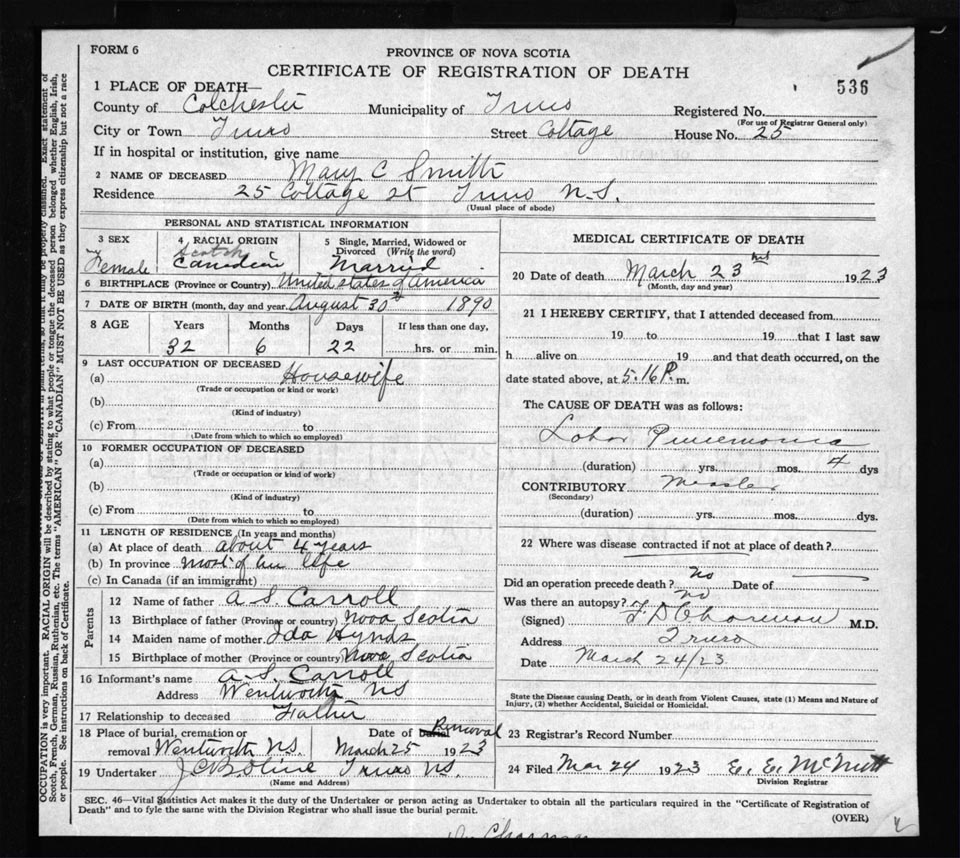 FORM 6
PROVINCE OF NOVA SCOTIA
CERTIFICATE OF REGISTRATION OF DEATH
536
1 PLACE OF DEATH—
County of Colchester Municipality of Truro Registered No.
(For use of Registrar General only)
City or Town Truro Street Cottage House No. 25
If in hospital or institution, give name
2 NAME OF DECEASED Mary C Smith
Residence 25 Cottage St Truro N.S.
(Usual place of abode)
PERSONAL AND STATISTICAL INFORMATION
3 SEX Female
4 RACIAL ORIGIN Scotch Canadian
5 Single, Married, Widowed or Divorced (Write the word) Married
6 BIRTHPLACE (Province or Country) United States of America
7 DATE OF BIRTH (month, day and year) August 30th 1890
8 AGE Years Months Days If less than one day,
32 6 22 hrs. or min.
9 LAST OCCUPATION OF DECEASED
(a) Housewife
(Trade or occupation or kind or work)
(b)
(Kind of industry)
(c) From to
(Date from which to which so employed)
10 FORMER OCCUPATION OF DECEASED
(a)
(Trade or occupation or kind of work)
(b)
(Kind of industry)
(c) From to
(Date from which to which so employed)
11 LENGTH OF RESIDENCE (In years and months)
(a) At place of death about 4 years
(b) In province most of her life
(c) In Canada (if an immigrant)
Parents
12 Name of father A. S. Carroll
13 Birthplace of father (Province or country) Nova Scotia
14 Maiden name of mother Ida Hynds
15 Birthplace of mother (Province or country) Nova Scotia
16 Informant's name A. S. Carroll
Address Wentworth NS
17 Relationship to deceased Father
18 Place of burial, cremation or removal Wentworth N.S.
Date of burial Removal March 25 1923
19 Undertaker Truro N.S.
(Name and Address)
MEDICAL CERTIFICATE OF DEATH
20 Date of death March 23 1923
(Month, day and year)
21 I HEREBY CERTIFY, that I attended deceased from
19 to 19 that I last saw
h alive on 19 and that death occurred, on the
date stated above, at 5.16 P. m.
The CAUSE OF DEATH was as follows:
Lobar Pneumonia
(duration) yrs. mos. 4 dys
CONTRIBUTORY Measles
(Secondary)
(duration) yrs. mos. dys.
22 Where was disease contracted if not at place of death?
Did an operation precede death? No Date of
Was there an autopsy? No
(Signed) M.D.
Address Truro
Date March 24/23
State the Disease causing Death, or in death from Violent Causes, state (1) Means and Nature of
Injury, (2) whether Accidental, Suicidal or Homicidal.
23 Registrar's Record Number
24 Filed Mar 24 1923 E. E. McNutt
Division Registrar
SEC. 46—Vital Statistics Act makes it the duty of the Undertaker or person acting as Undertaker to obtain all the particulars required in the "Certificate of Registration of
Death" and to fyle the same with the Division Registrar who shall issue the burial permit.
(OVER)
OCCUPATION is very important. RACIAL ORIGIN will be described by stating to what people or tongue the deceased person belonged whether English, Irish,
Scotch, French, German, Russian, Ruthenian, etc. The terms "AMERICAN" OR "CANADIAN" MUST NOT BE USED as they express citizenship but not a race
or people. See instructions on back of Certificate.